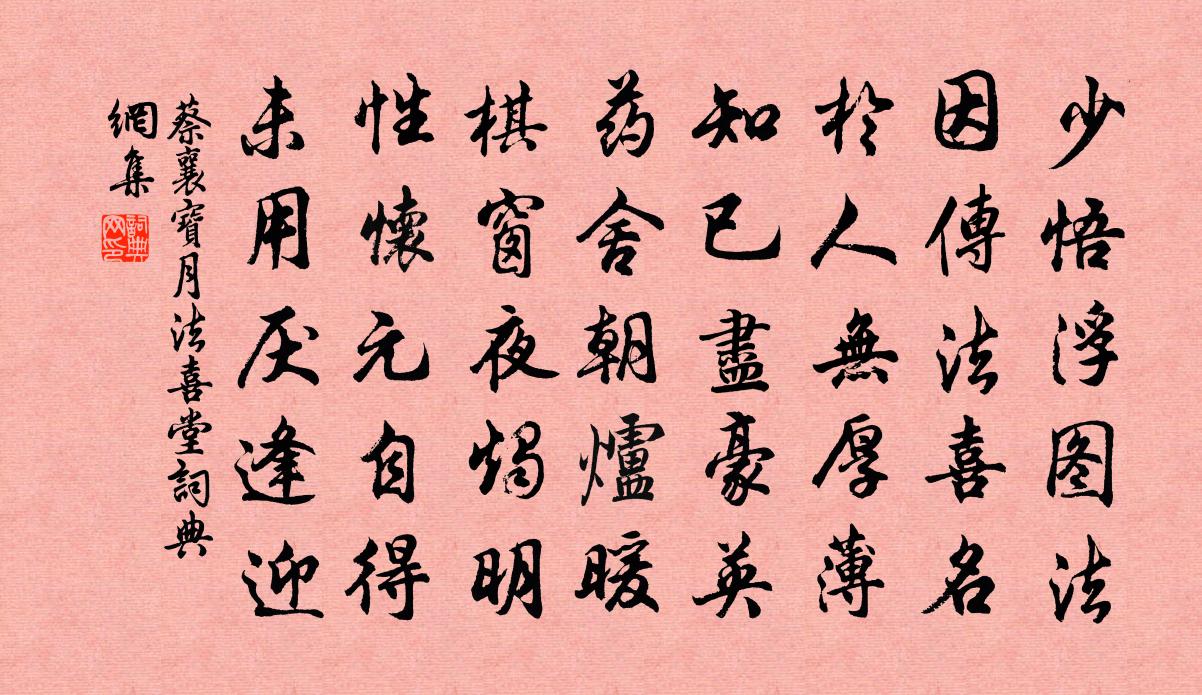 少悟浮图法
因傳法喜名
於人無厚薄
知已盡豪英
药舍朝爐暖
棋窗夜燭明
性懷元自得
未用厌逢迎
蔡襄寶月法喜堂詞典
網集
詞典網印